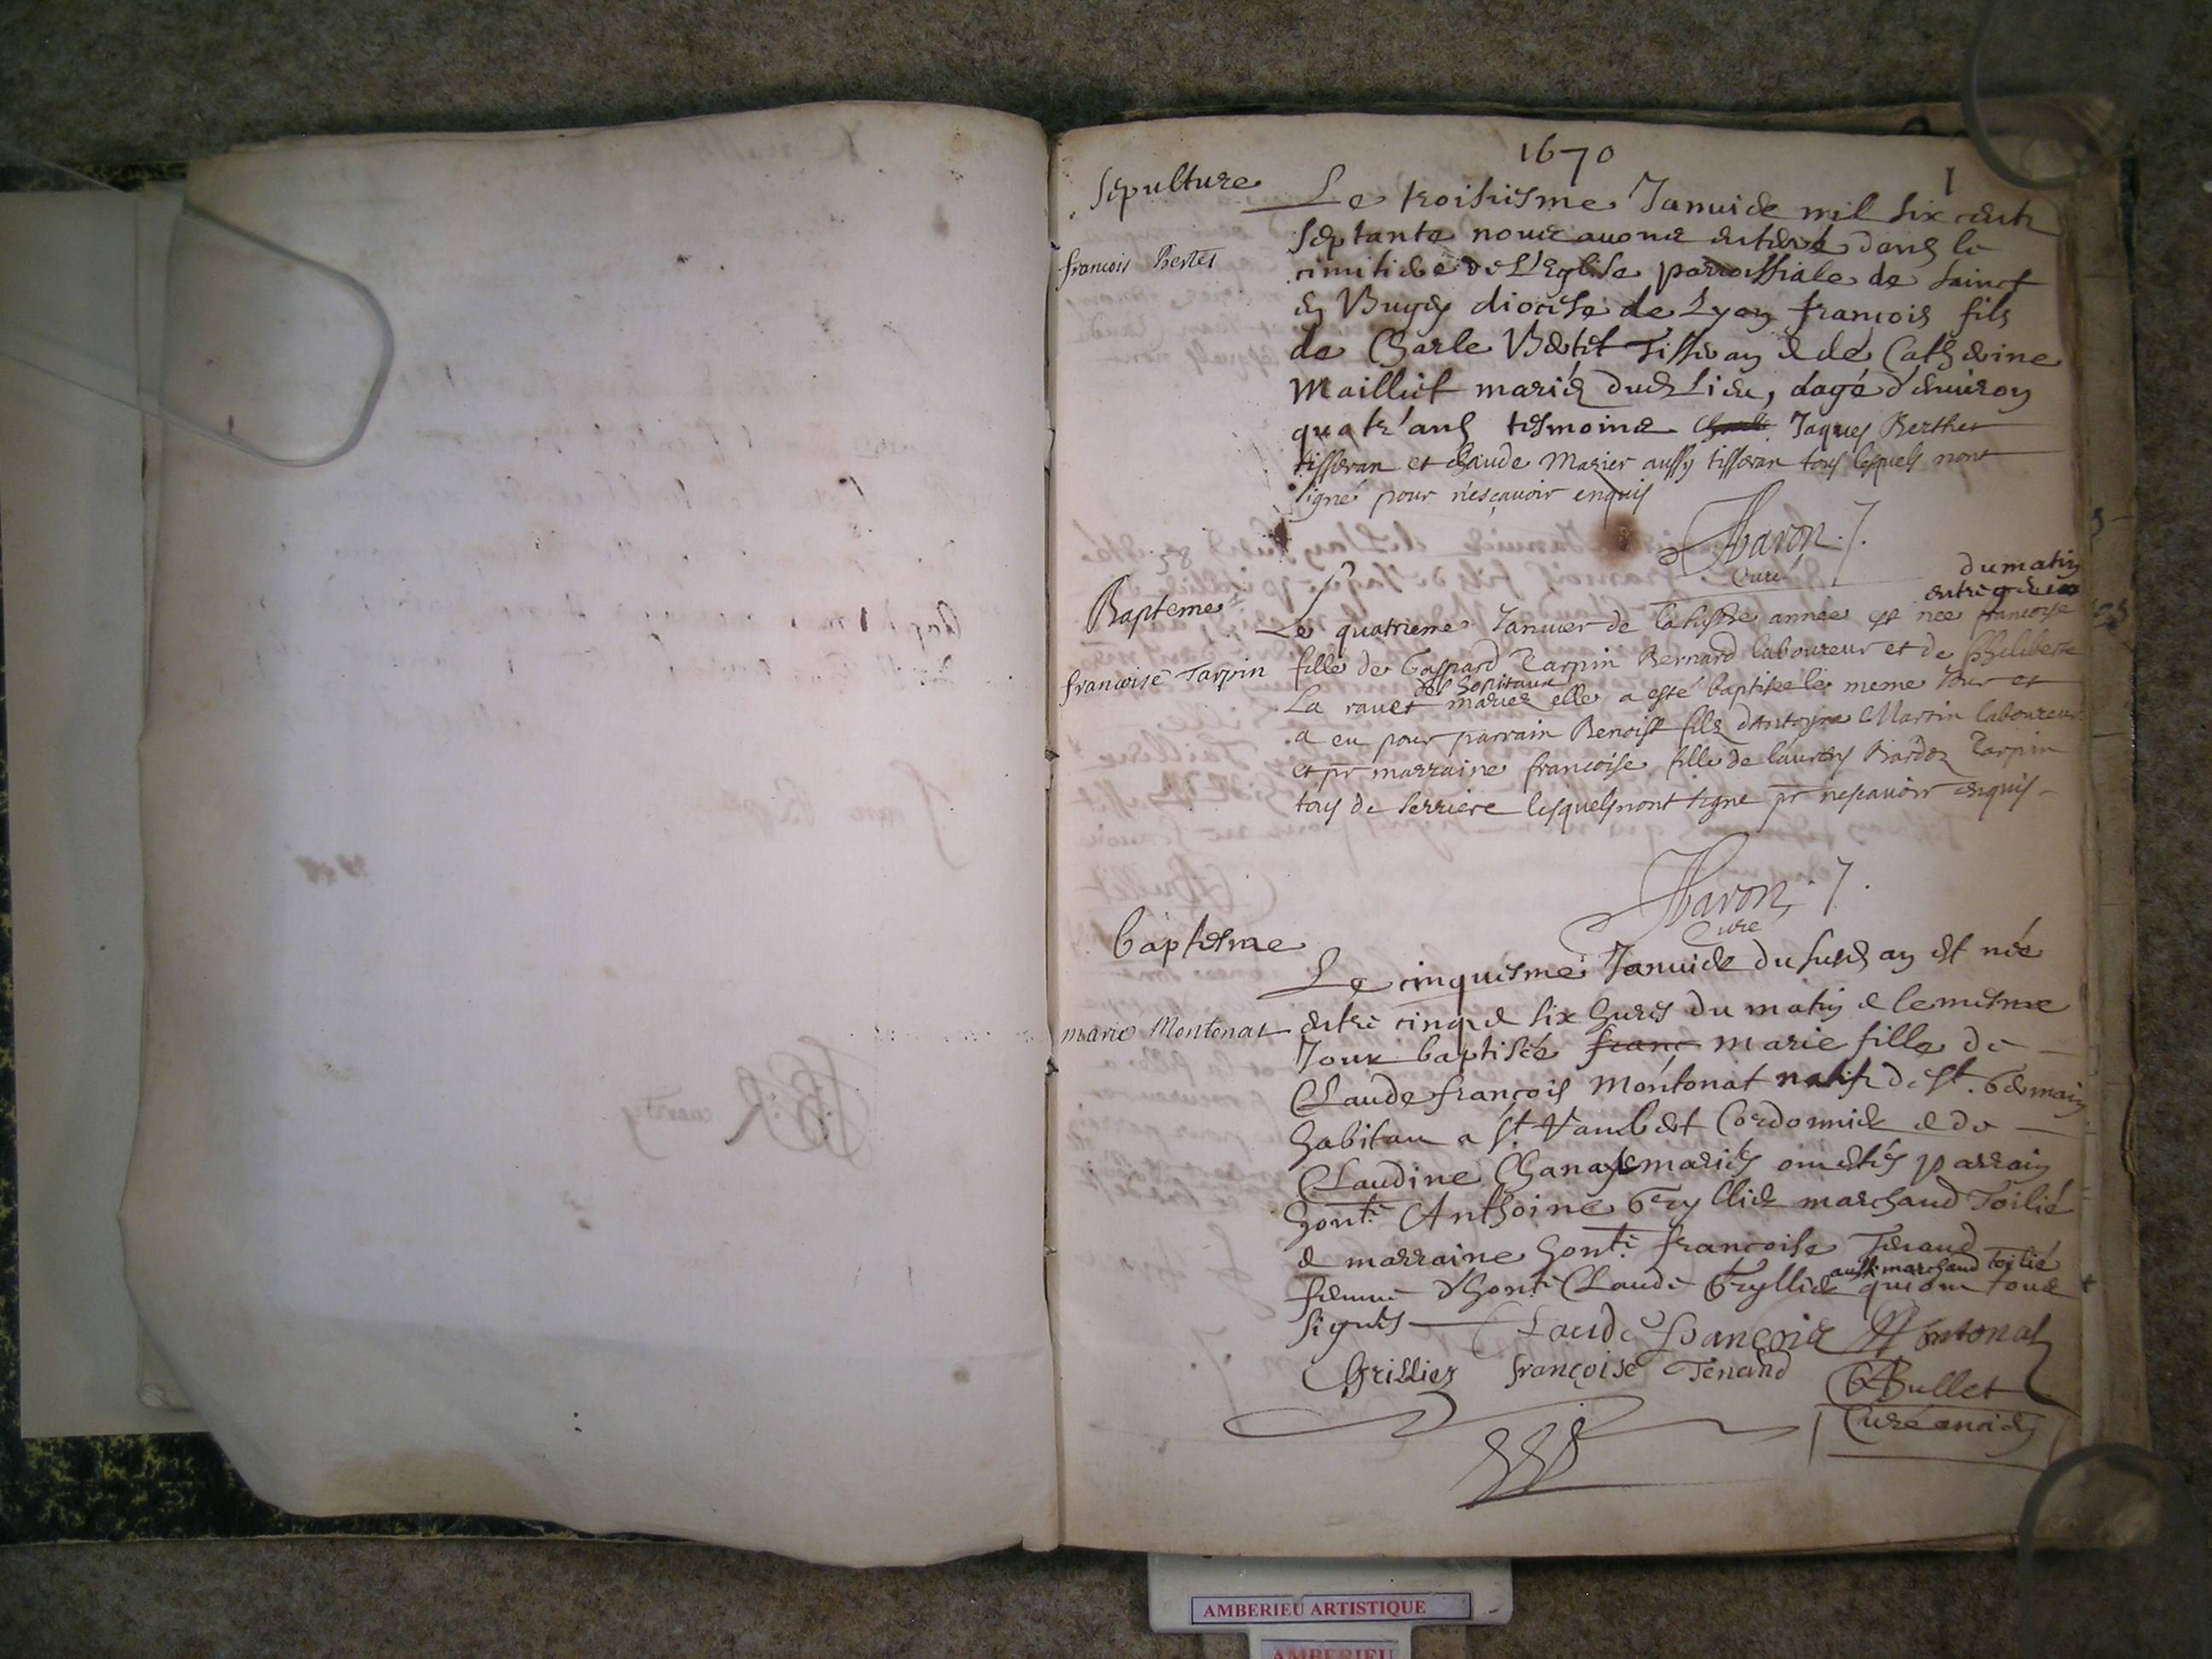 1670
1
Sepulture
francois Bertet
Le troisiesme Januier mil six cents
septante nous auons enterré dans le
cimitiere de L'Eglise parrossiale de sainct
en Bugey diocese de Lyon francois fils
de Charle Bertet Tisseran & de Catherine
Mailliet mariés dud Lieu, dagé d'enuiron
quatr'ans tesmoins Jaques Berthet
tisseran et Claude Marier aussy tisseran tous lesquels nont
signé pour nesçauoir enquis
Baron
Curé
58
Bapteme
francoise Tarpin
du matin
entre
Le quatrieme Januier de la susdte annee est nee francoise
fille de Gaspard Tarpin Bernard laboureur et de Philiberte
des hopitaux
La rauet mariez elle a esté baptisee le meme Jour et
a eu pour parrain Benoist fils dAntoyne Martin laboureur
et pr marraine francoise fille de laurens Bardoz Tarpin
tous de serriere lesquels nont signe pr nescauoir enquis
Baron
Cure
baptesme
marie Montonat
Le cinquiesme Januier du susd an est née
entre cinq & six heures du matin & le mesme
Jour baptisée franc marie fille de
Claude françois Montonat natif de st. Germain
habitan a st Rambert Cordonnier & de
Claudine mariés ont estés parrain
hont. Anthoine Gryllier marchand Toilié
& marraine hont. francoise Tenand
aussi marchand toilié
femme d'hont Claude Gryllier qui ont tous
signés
Claude François Montonat
Grillier françoise Tenand
Bullet
Curé
AMBERIEU ARTISTIQUE
AMBERIEU